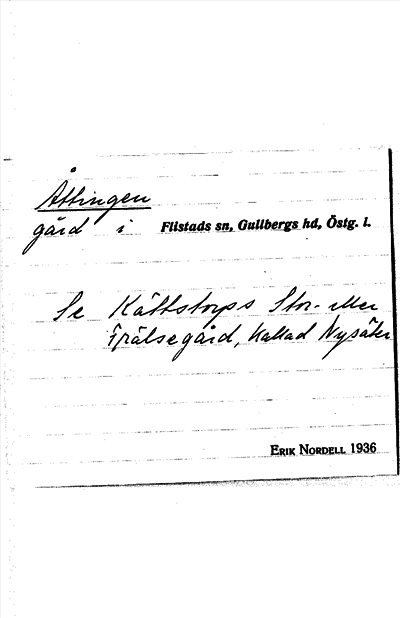 Åttingen
gård i Flistads sn, Gullbergs hd, Östg. l.
Se Kättstorps Stor- eller
Frälsegård, kallad Nysäter
ERIK NORDELL 1936